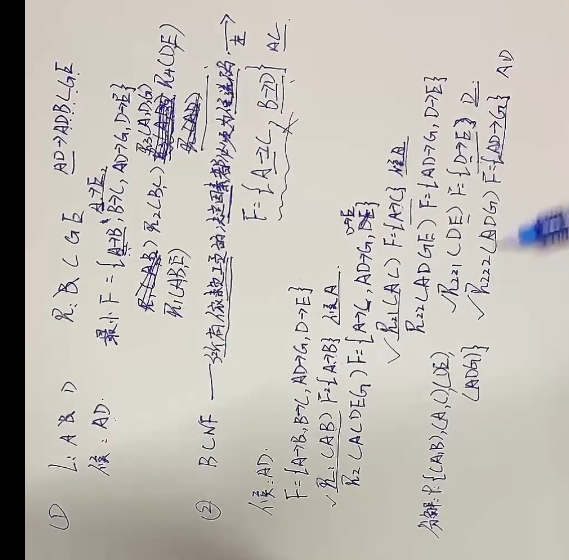 ① L: A B D R: B C G E AD→ADBCGE
候: AD. 最小F={A→B, A→E, B→C, AD→G, D→E}
R2(BC) R3(A,D,G) R4(DE)
R1(ABE)
② BCNF — 所有依赖
F={A→C, B→D} AC
候: AD.
F={A→B, B→C, AD→G, D→E}
✓R1(AB) F={A→B} 候A.
R2(ACDEG) F={A→C, AD→G, D→E}
✓R21(AC) F={A→C} 候A
R22(ADGE) F={AD→G, D→E}
✓R221(DE) F={D→E} D.
✓R222(ADG) F={AD→G} AD
分解: {(A,B),(A,C),(DE),
(ADG)}